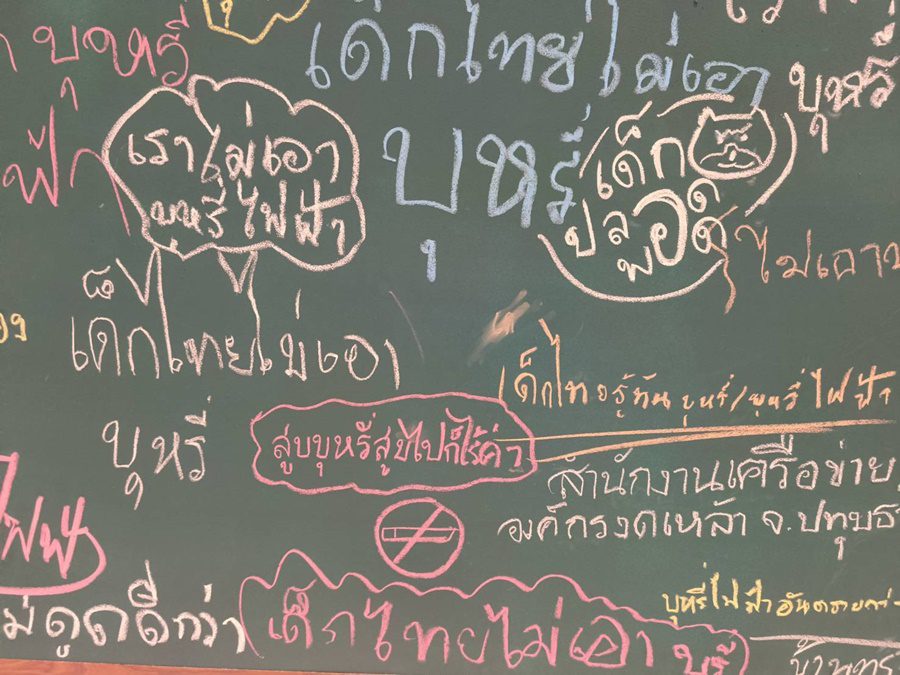 บุหรี่
เด็กไทยไม่เอา
บุหรี่
บุหรี่
เราไม่เอา
บุหรี่ไฟฟ้า
เด็ก
ปลอด
ไม่เอา
เด็กไทยไม่เอา
บุหรี่
เด็กไทยรู้ทันบุหรี่/บุหรี่ไฟฟ้า
สูบบุหรี่สูบไปก็ไร้ค่า
สำนักงานเครือข่าย
องค์กรงดเหล้า จ.ปทุมธ
ไฟฟ้
ดูดดีกว่า
เด็กไทยไม่เอา
บุหรี่ไฟฟ้าอันตราย